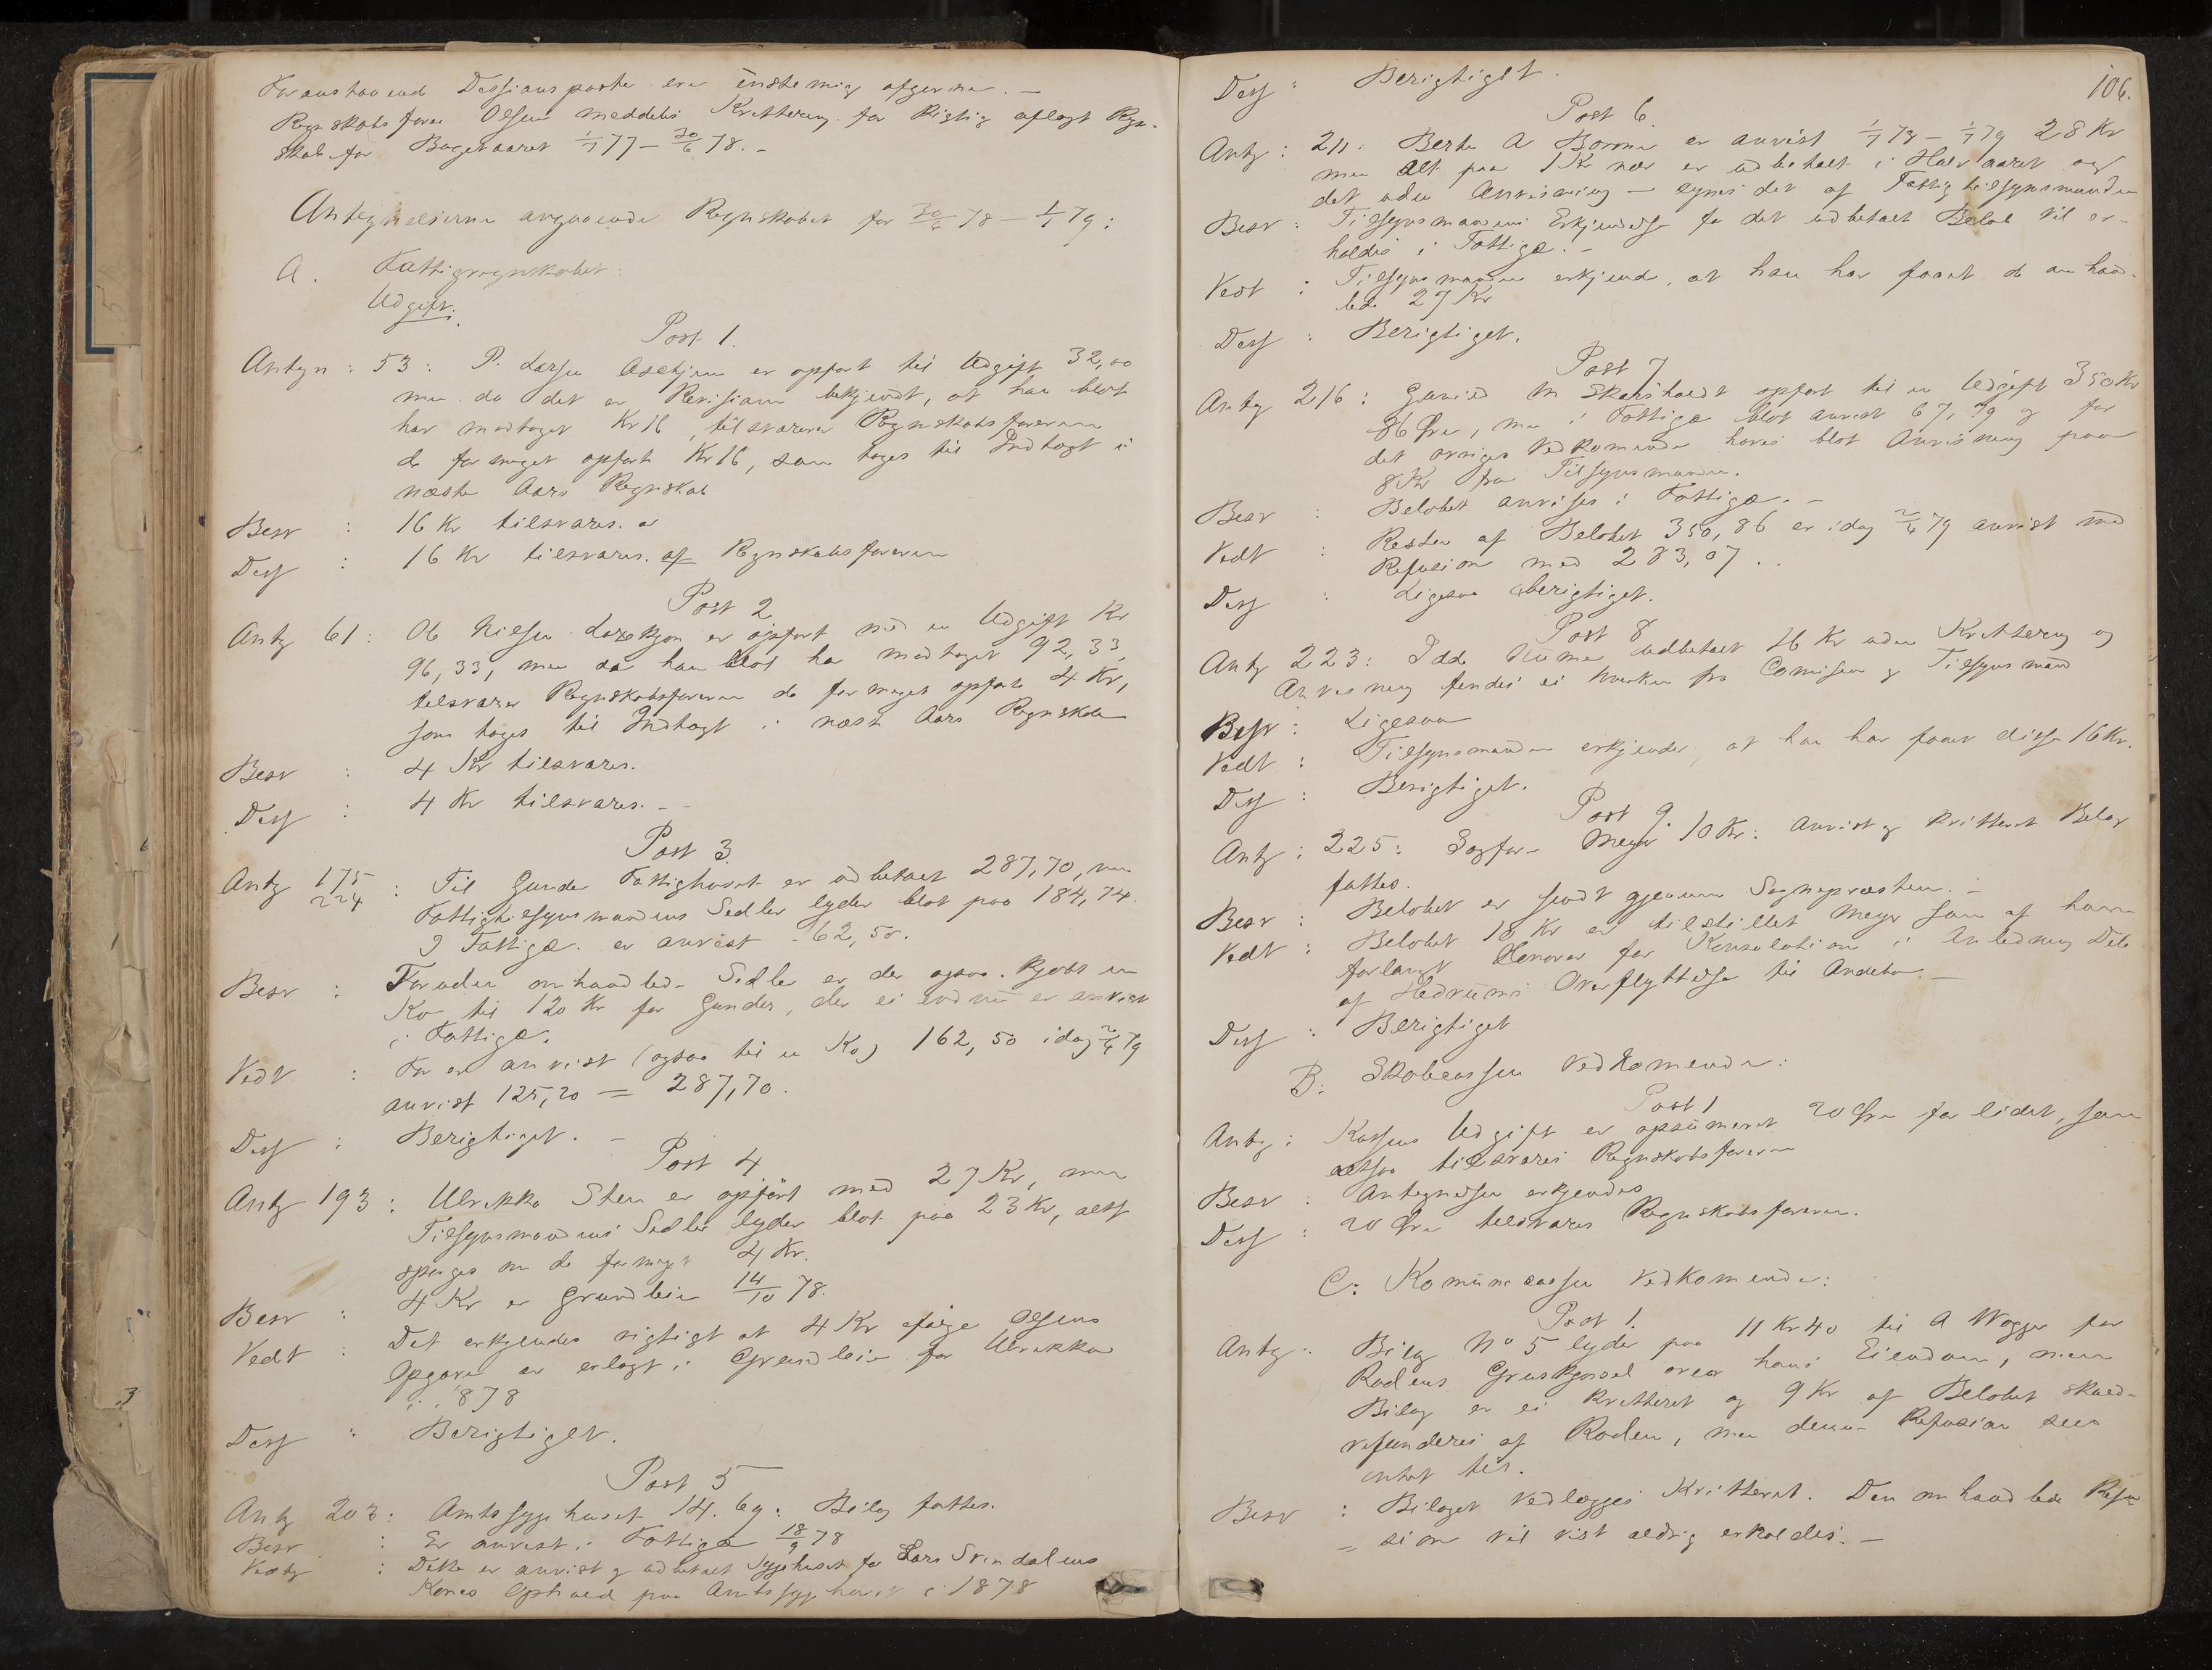 Foranstaaende Desisionsposter ere enstemmig afgjorne. —
Regnskabsfører Olsen meddeles Kvittering for Rigtig aflagt Regn-
skab for Bogetaaret 1/7 77 – 30/6 78. –
Antegnelserne angaaende Regnskabet for 30/6 78 – 1/1 79:
A. Fattigregnskabet:
Udgift:
Post 1.
Antgn: 53: P. Larsen Askjem er opført til Udgift 32,00
men da det er Revisionen bekjendt, at han blot
har modtaget Kr 16, tilsvarer Regnskabsføreren
de for meget opførte Kr 16, som tages til Indtægt i
næste Aars Regnskab
Besv : 16 Kr tilsvares.
Des : 16 Kr tilsvares af Regnskabsføreren
Post 2
Antg 61: Ole Nilsen er opført med en Udgift Kr
96,33, men da han blot har modtaget 92,33,
tilsvarer Regnskabsføreren de for meget opførte 4 Kr,
som tages til Indtægt i næste Aars Regnskab
Besv : 4 Kr tilsvares.
Des : 4 Kr tilsvares. –
Post 3.
Antg 175 224 : Til Gunder Fattighuset er udbetalt 287,70, men
Fattigtilsynsmandens Sedler lyder blot paa 184,74.
I Fattigco. er anvist 162,50.
Besv : Foruden omhandlede Sedler er der ogsaa kjøbt en
Ko til 120 Kr for Gunder, der ei endnu er anvist
i Fattigco.
Vedt : Før er anvist (ogsaa til en Ko) 162,50 idag 2/4 79
anvist 125,20 = 287,70.
Des : Berigtiget. –
Post 4
Antg 193: Ulrikke Sten er opført med 27 Kr, men
Tilsynsmandens Sedler lyder blot paa 23 Kr, altsaa
spørges om de formeget 4 Kr.
Besv : 4 Kr er Grundleie 14/10 78.
Vedt : Det erkjendes rigtigt at 4 Kr ifølge Olsens
Opgave er erlagt i Grundleie for Ulrikke
i 1878
Des : Berigtiget.
Post 5
Antg 202: Amtssygehuset 14.69: Bilag fattes.
Besv : Er anvist i Fattigco 18/9 78
Vedtg : Dette er anvist og udbetalt Sygehuset for Lars Svendalens
Kones Ophold paa Amtssygehuset i 1878
106.
Des : Berigtiget.
Post 6.
Antg: 211: Berthe A Bomme er anvist 1/7 78 – 1/1 79 28 Kr
men Alt paa 1 Kr nær er udbetalt i Halvaaret og
det uden Anvisning – synes det af Fattigtilsynsmanden
Besv : Tilsynsmandens Erkjendelse for det udbetalt Beløb vil er-
holdes i Fattigco. –
Vedt : Tilsynsmanden erkjender, at han har faaet de omhand-
lede 27 Kr
Des : Berigtiget.
Post 7
Antg 216: Gunild M Skarsholdt opført til en Udgift 350 Kr
86 Øre, men i Fattigco blot anvist 67,79 og for
det øvriges Vedkommende haves blot Anvisning paa
8 Kr fra Tilsynsmanden.
Besv : Beløbet anvises i Fattigco. –
Vedt : Resten af Beløbet 350,86 er idag 2/4 79 anvist med
Refusion med 283,07 ..
Des : Ligesaa berigtiget.
Post 8
Antg 223: Udbetalt 16 Kr uden Kvittering og
Anvisning findes ei hverken fra Comissen og Tilsynsmand
Besv : Ligesaa
Vedt : Tilsynsmanden erkjender, at han har faaet disse 16 Kr.
Des : Berigtiget.
Post 9.
Antg: 225: Sagfør. Meyer 10 Kr: Anvist og kvitteret Bilag
fattes.
Besv : Beløbet er sendt gjennem Sognepresten. –
Vedt : Beløbet 10 Kr er tilstillet Meyer som af ham
forlangt Honorar for Konsulation i Anledning Dele
af Hedrums Overflyttelse til Andebu. –
Des : Berigtiget
B: Skolecassen Vedkomende:
Post 1
Antg: Kassens Udgift er opsumeret 20 Øre for lidet, som
altsaa tilsvares Regnskabsføreren
Besv : Antegnelsen erkjendes
Des : 20 Øre tilsvares Regnskabsføreren.
C: Komunecassen Vedkomende:
Post 1.
Antg: Bilag No 5 lyder paa 11 Kr 40 til A Wogge for
Rodens Gruskjørsel over hans Eiendom, men
Bilag er ei kvitteret og 9 Kr af Beløbet skulde
refunderes af Roden, men denne Refusion sees
intet til.
Besv : Bilaget vedlægges Kvitteret. Den omhandlede Refu
– sion vil vist aldrig erholdes. –